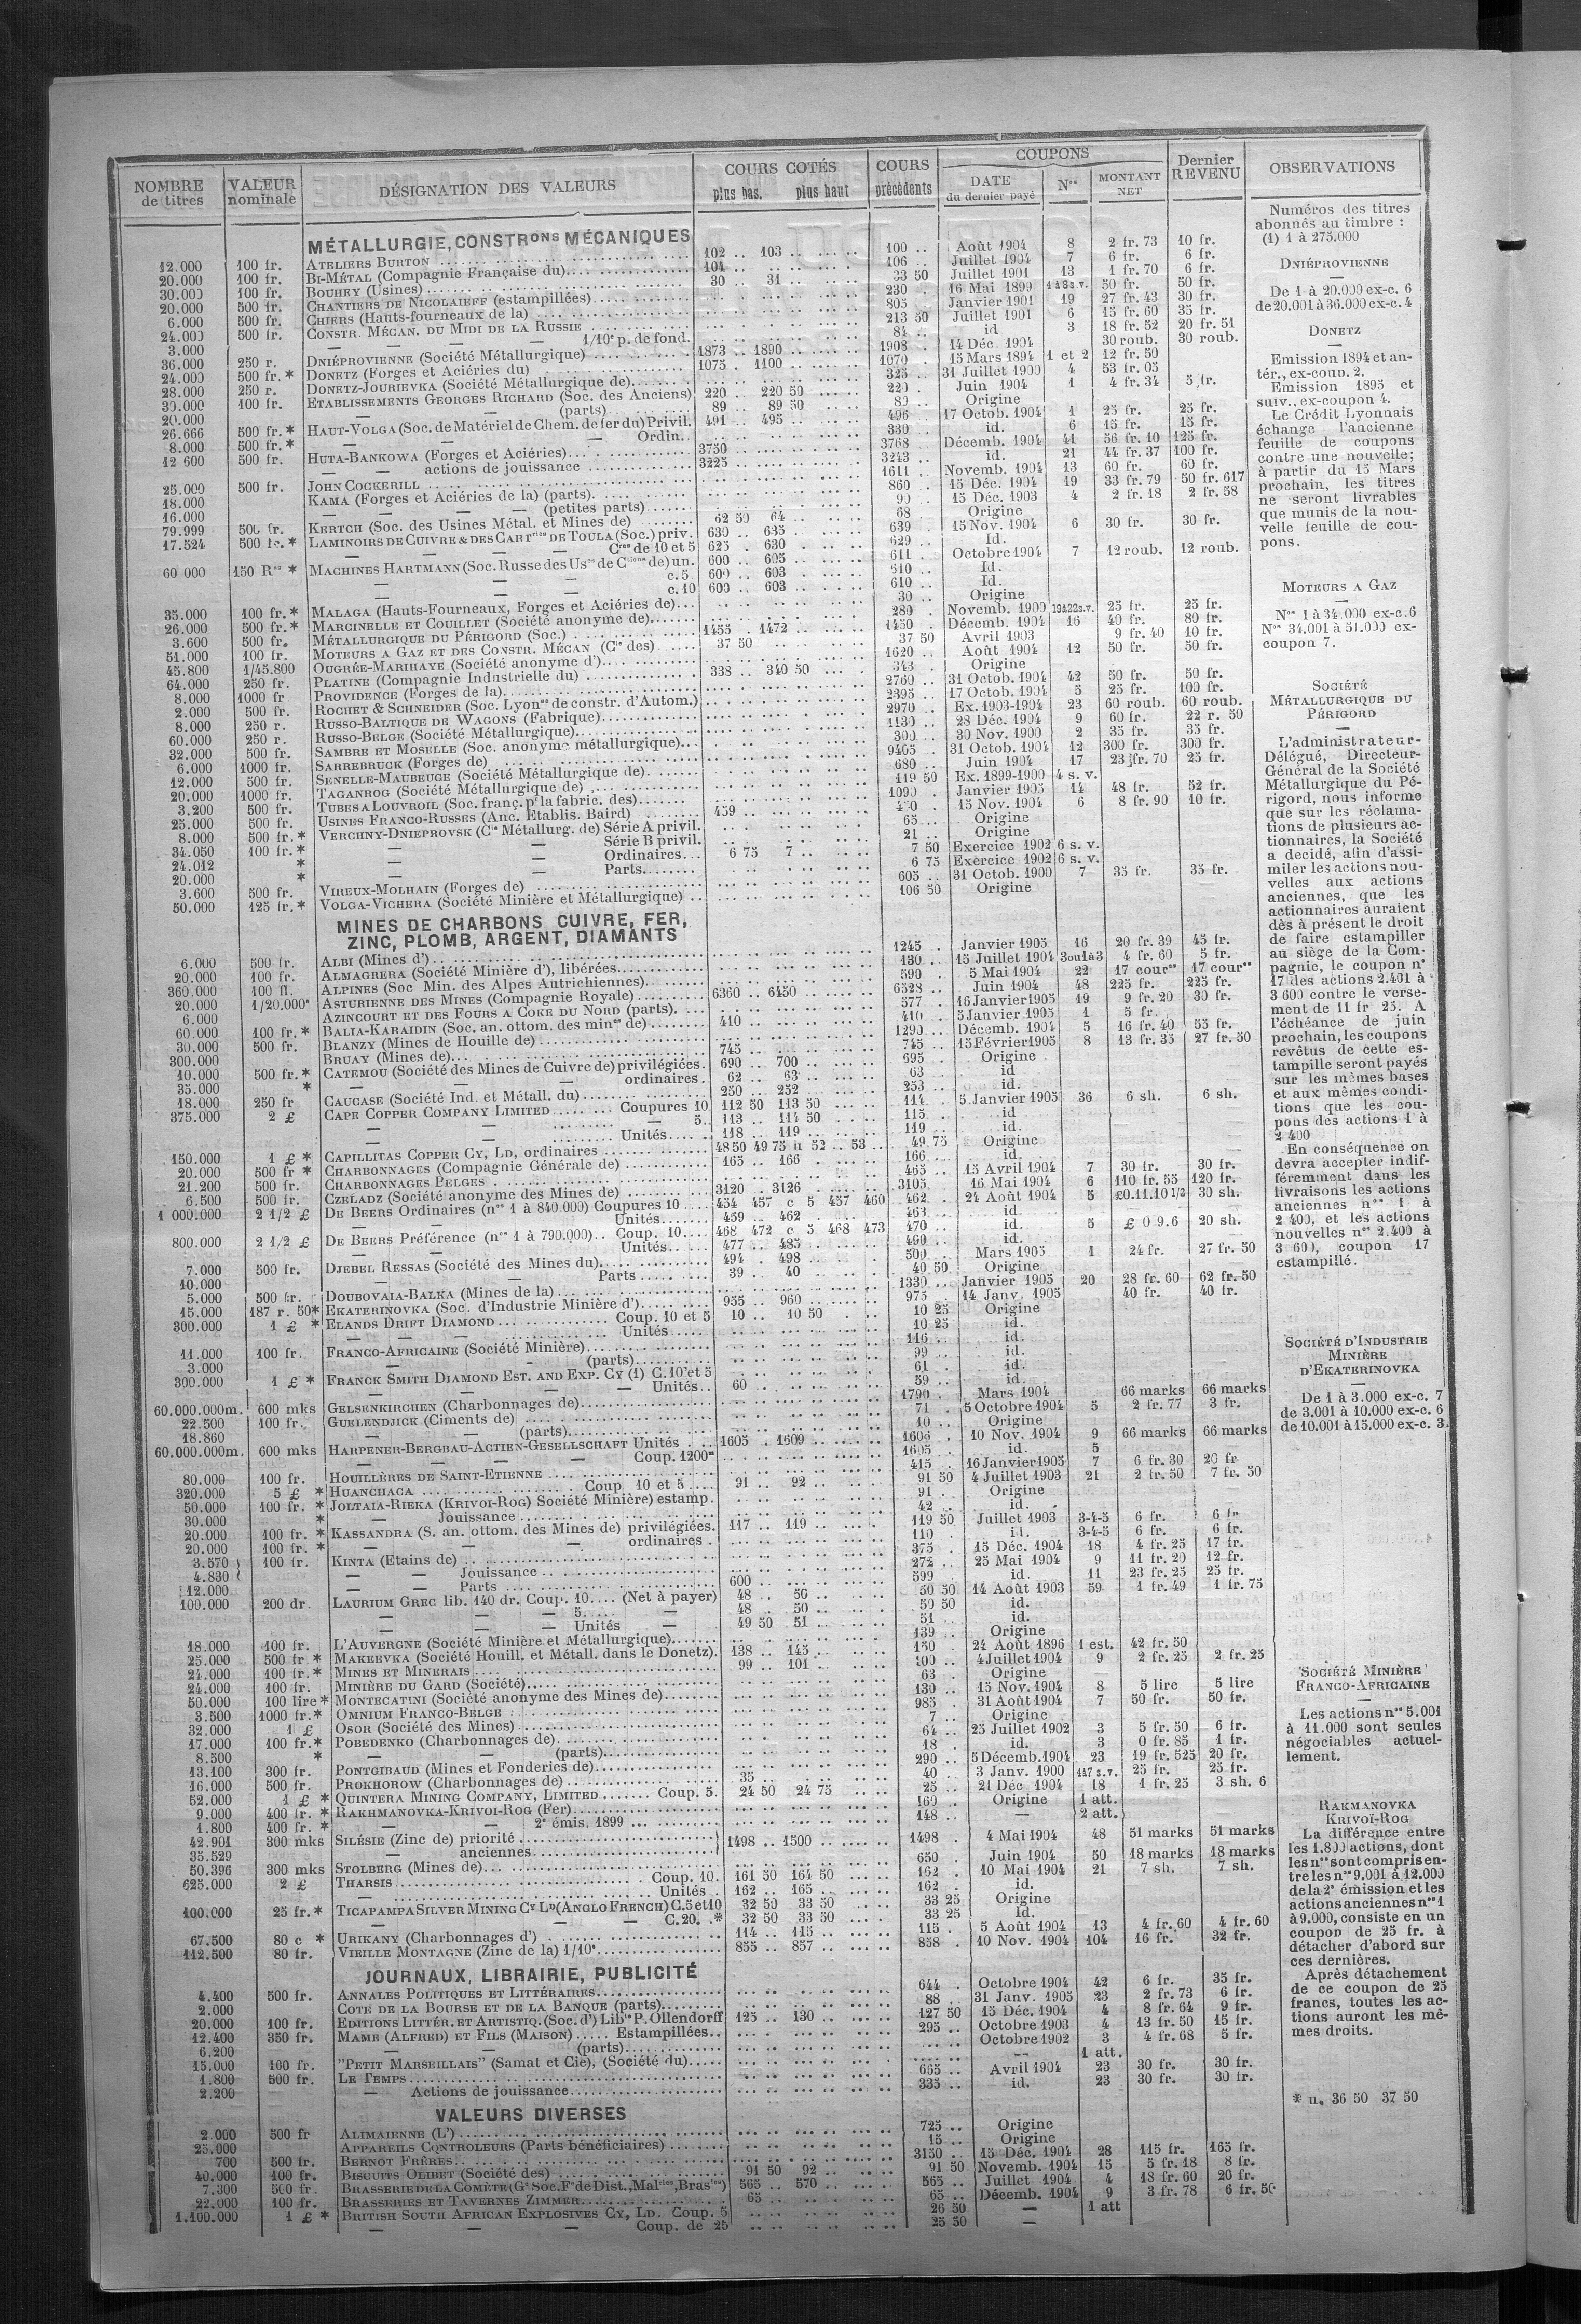 NOMBRE de titres | VALEUR nominale | DÉSIGNATION DES VALEURS | COURS COTÉS plus bas. plus haut | COURS précédents | COUPONS DATE du dernier payé | Nos | MONTANT NET | Dernier REVENU | OBSERVATIONS
MÉTALLURGIE, CONSTRons MÉCANIQUES
12.000 100 fr. ATELIERS BURTON 102 .. 103 .. 100 .. Août 1904 8 2 fr. 73 10 fr.
20.000 100 fr. BI-MÉTAL (Compagnie Française du) 104 .. 106 .. Juillet 1904 7 6 fr. 6 fr.
30.000 100 fr. BOUHEY (Usines) 30 .. 31 .. 33 50 Juillet 1901 13 1 fr. 70 6 fr.
20.000 500 fr. CHANTIERS DE NICOLAIEFF (estampillées) 230 .. 16 Mai 1899 50 fr. 50 fr.
6.000 500 fr. CHIERS (Hauts-fourneaux de la) 805 .. Janvier 1901 19 27 fr. 43 30 fr.
24.000 500 fr. CONSTR. MÉCAN. DU MIDI DE LA RUSSIE 213 50 Juillet 1901 6 15 fr. 60 35 fr.
3.000 — — — 1/10e p. de fond. 84 .. id 3 18 fr. 52 20 fr. 51
36.000 250 r. DNIÉPROVIENNE (Société Métallurgique) 1873 .. 1890 .. 1908 .. 14 Déc. 1904 30 roub. 30 roub.
24.000 500 fr. * DONETZ (Forges et Aciéries du) 1075 .. 1100 .. 1070 .. 15 Mars 1894 1 et 2 12 fr. 50
28.000 250 r. DONETZ-JOURIEVKA (Société Métallurgique de) 325 .. 31 Juillet 1900 4 53 fr. 05
30.000 100 fr. ETABLISSEMENTS GEORGES RICHARD (Soc. des Anciens) 220 .. 220 50 220 .. Juin 1904 1 4 fr. 34 5 fr.
20.000 — — (parts) 89 .. 89 50 89 .. Origine
26.666 500 fr. * HAUT-VOLGA (Soc. de Matériel de Chem. de fer du) Privil. 491 .. 495 .. 496 .. 17 Octob. 1904 1 25 fr. 25 fr.
8.000 500 fr. * — — Ordin. 330 .. id. 6 15 fr. 15 fr.
12 600 500 fr. HUTA-BANKOWA (Forges et Aciéries) 3750 .. 3768 .. Décemb. 1904 41 56 fr. 10 125 fr.
— — actions de jouissance 3225 .. 3243 .. id. 21 44 fr. 37 100 fr.
25.000 500 fr. JOHN COCKERILL 1611 .. Novemb. 1904 13 60 fr. 60 fr.
18.000 KAMA (Forges et Aciéries de la) (parts) 860 .. 15 Déc. 1904 19 33 fr. 79 50 fr. 617
16.000 — — — (petites parts) 90 .. 15 Déc. 1903 4 2 fr. 18 2 fr. 58
79.999 500 fr. KERTCH (Soc. des Usines Métal. et Mines de) 62 50 64 .. 68 Origine
17.524 500 fr. * LAMINOIRS DE CUIVRE & DES CARTries DE TOULA (Soc.) priv. 630 .. 635 .. 639 .. 15 Nov. 1904 6 30 fr. 30 fr.
— — — Cres de 10 et 5 625 .. 630 .. 629 .. Id.
60 000 150 Res * MACHINES HARTMANN (Soc. Russe des Uses de Ctions de) un. 600 .. 605 .. 611 .. Octobre 1904 7 12 roub. 12 roub.
— — — c. 5 600 .. 603 .. 610 .. Id.
— — — c. 10 600 .. 603 .. 610 .. Id.
35.000 100 fr. * MALAGA (Hauts-Fourneaux, Forges et Aciéries de) 30 .. Origine
26.000 500 fr. * MARCINELLE ET COUILLET (Société anonyme de) 280 .. Novemb. 1900 19à22 s.v. 25 fr. 25 fr.
3.600 500 fr. MÉTALLURGIQUE DU PÉRIGORD (Soc.) 1455 . 1472 .. 1450 .. Décemb. 1904 16 40 fr. 80 fr.
51.000 100 fr. MOTEURS A GAZ ET DES CONSTR. MÉCAN (Cie des) 37 50 37 50 Avril 1903 9 fr. 40 10 fr.
45.800 1/45.800 OUGRÉE-MARIHAYE (Société anonyme d') 1620 .. Août 1904 12 50 fr. 50 fr.
64.000 250 fr. PLATINE (Compagnie Industrielle du) 338 .. 340 50 343 . Origine
8.000 1000 fr PROVIDENCE (Forges de la) 2760 .. 31 Octob. 1904 42 50 fr. 50 fr.
2.000 500 fr. ROCHET & SCHNEIDER (Soc. Lyonse de constr. d'Autom.) 2395 .. 17 Octob. 1904 5 25 fr. 100 fr.
8.000 250 r. RUSSO-BALTIQUE DE WAGONS (Fabrique) 2970 .. Ex. 1903-1904 23 60 roub. 60 roub.
60.000 250 r. RUSSO-BELGE (Société Métallurgique) 1130 .. 28 Déc. 1904 9 60 fr. 22 r. 50
32.000 500 fr. SAMBRE ET MOSELLE (Soc. anonyme métallurgique) 300 .. 30 Nov. 1900 2 35 fr. 35 fr.
6.000 1000 fr. SARREBRUCK (Forges de) 9405 .. 31 Octob. 1904 12 300 fr. 300 fr.
12.000 500 fr. SENELLE-MAUBEUGE (Société Métallurgique de) 680 .. Juin 1904 17 23 fr. 70 25 fr.
20.000 1000 fr. TAGANROG (Société Métallurgique de) 119 50 Ex. 1899-1900 4 s. v.
3.200 500 fr. TUBES A LOUVROIL (Soc. franç. pr la fabric. des) 1090 .. Janvier 1905 14 48 fr. 52 fr.
25.000 500 fr. USINES FRANCO-RUSSES (Anc. Etablis. Baird) 459 .. 15 Nov. 1904 6 8 fr. 90 10 fr.
8.000 500 fr. * VERCHNY-DNIEPROVSK (Cie Métallurg. de) Série A privil. 65 .. Origine
34.050 100 fr. * — — Série B privil. 21 .. Origine
24.012 * — — Ordinaires 6 75 7 .. 7 50 Exercice 1902 6 s. v.
20.000 * — — Parts 6 75 Exercice 1902 6 s. v.
3.600 500 fr. VIREUX-MOLHAIN (Forges de) 605 .. 31 Octob. 1900 7 35 fr. 35 fr.
50.000 125 fr. * VOLGA-VICHERA (Société Minière et Métallurgique) 106 50 Origine
MINES DE CHARBONS, CUIVRE, FER,
ZINC, PLOMB, ARGENT, DIAMANTS
6.000 500 fr. ALBI (Mines d') 1245 .. Janvier 1905 16 20 fr. 39 45 fr.
20.000 100 fr. ALMAGRERA (Société Minière d'), libérées 130 .. 15 Juillet 1904 3ou1à3 4 fr. 60 5 fr.
360.000 100 fl. ALPINES (Soc Min. des Alpes Autrichiennes) 590 . 5 Mai 1904 22 17 cour. 17 cour.
20.000 1/20.000e ASTURIENNE DES MINES (Compagnie Royale) 6360 .. 6450 .. 6528 .. Juin 1904 48 225 fr. 225 fr.
6.000 AZINCOURT ET DES FOURS A COKE DU NORD (parts) 577 . 16 Janvier 1905 19 9 fr. 20 30 fr.
60.000 100 fr. * BALIA-KARAIDIN (Soc. an. ottom. des mines de) 410 .. 410 . 5 Janvier 1905 1 5 fr.
30.000 500 fr. BLANZY (Mines de Houille de) 1290 .. Décemb. 1904 5 16 fr. 40 55 fr.
300.000 BRUAY (Mines de) 745 .. 745 .. 15 Février 1905 8 13 fr. 35 27 fr. 50
10.000 500 fr. * CATEMOU (Société des Mines de Cuivre de) privilégiées 690 .. 700 .. 695 .. Origine
35.000 * — — ordinaires 62 .. 63 .. 63 id
18.000 250 fr CAUCASE (Société Ind. et Métall. du) 250 .. 252 .. 253 .. id.
375.000 2 £ CAPE COPPER COMPANY LIMITED Coupures 10 112 50 113 50 114 .. 5 Janvier 1905 36 6 sh. 6 sh.
— — — 5 113 .. 114 50 115 .. id
— — Unités 118 .. 119 .. 119 .. id.
150.000 1 £ * CAPILLITAS COPPER CY, LD, ordinaires 48 50 49 75 u 52 .. 53 .. 49 75 Origine
20.000 500 fr * CHARBONNAGES (Compagnie Générale de) 165 .. 166 . 166 .. id.
21.200 500 fr. CHARBONNAGES BELGES 465 .. 15 Avril 1904 7 30 fr. 30 fr.
6.500 500 fr. CZELADZ (Société anonyme des Mines de) 3120 . 3126 3105 . 16 Mai 1904 6 110 fr. 55 120 fr.
1 000.000 2 1/2 £ DE BEERS Ordinaires (nos 1 à 840.000) Coupures 10 454 457 c 5 457 460 462 . 24 Août 1904 5 £0.11.10 1/2 30 sh.
— Unités 459 .. 462 .. 463 .. id.
800.000 2 1/2 £ DE BEERS Préférence (nos 1 à 790.000) Coup. 10 468 472 c 5 468 473 470 .. id. 5 £ 0 9.6 20 sh.
Unités 477 .. 485 .. 490 .. id.
7.000 500 fr. DJEBEL RESSAS (Société des Mines du) 494 . 498 .. 500 .. Mars 1905 1 24 fr. 27 fr. 50
10.000 — — Parts 39 .. 40 .. 40 50 Origine
5.000 500 fr. DOUBOVAIA-BALKA (Mines de la) 1330 .. Janvier 1905 20 28 fr. 60 62 fr. 50
15.000 187 r. 50 * EKATERINOVKA (Soc. d'Industrie Minière d') 955 .. 960 .. 975 .. 14 Janv. 1905 40 fr. 40 fr.
300.000 1 £ * ELANDS DRIFT DIAMOND Coup. 10 et 5 10 .. 10 50 10 25 Origine
— — — Unités 10 25 id.
11.000 100 fr. FRANCO-AFRICAINE (Société Minière) 116 .. id.
3.000 — — (parts) 99 .. id.
300.000 1 £ * FRANCK SMITH DIAMOND EST. AND EXP. CY (1) C. 10 et 5 61 .. id.
— — — — Unités 60 .. 59 .. id.
60.000.000m. 600 mks GELSENKIRCHEN (Charbonnages de) 1790 .. Mars 1904 66 marks 66 marks
22.500 100 fr. GUELENDJICK (Ciments de) 71 . 5 Octobre 1904 5 2 fr. 77 3 fr.
18.860 — — (parts) 10 .. Origine
60.000.000m. 600 mks HARPENER-BERGBAU-ACTIEN-GESELLSCHAFT Unités 1605 . 1609 .. 1606 .. 10 Nov. 1904 9 66 marks 66 marks
— — — Coup. 1200m 1605 .. id. 5
80.000 100 fr. HOUILLÈRES DE SAINT-ETIENNE 415 .. 16 Janvier 1905 7 6 fr. 30 20 fr
320.000 5 £ * HUANCHACA Coup 10 et 5 91 .. 92 .. 91 50 4 Juillet 1903 21 2 fr. 50 7 fr. 50
50.000 100 fr. * JOLTAIA-RIEKA (KRIVOI-ROG) Société Minière) estamp. 91 .. Origine
30.000 * — Jouissance 42 .. id.
20.000 100 fr. * KASSANDRA (S. an. ottom. des Mines de) privilégiées 117 .. 119 .. 119 50 Juillet 1903 3-4-5 6 fr. 6 fr
20.000 100 fr. * — — ordinaires 110 . id. 3-4-5 6 fr. 6 fr.
3.570 100 fr. KINTA (Etains de) 375 .. 15 Déc. 1904 18 4 fr. 25 17 fr.
4.830 — — Jouissance 272 .. 25 Mai 1904 9 11 fr. 20 12 fr.
12.000 — — Parts 600 .. 599 id. 11 23 fr. 25 25 fr.
100.000 200 dr. LAURIUM GREC lib. 140 dr. Coup. 10 (Net à payer) 48 .. 50 .. 50 50 14 Août 1903 59 1 fr. 49 1 fr. 75
— — — 5 — 48 .. 50 .. 50 50 id.
— — — Unités — 49 50 51 .. 51 .. id.
18.000 100 fr. L'AUVERGNE (Société Minière et Métallurgique) 139 .. Origine
25.000 500 fr * MAKEEVKA (Société Houill. et Métall. dans le Donetz) 138 .. 145 .. 150 . 24 Août 1896 1 est. 42 fr. 50
24.000 100 fr. * MINES ET MINERAIS 99 .. 101 .. 100 .. 4 Juillet 1904 9 2 fr. 25 2 fr. 25
24.000 100 fr. MINIÈRE DU GARD (Société) 63 . Origine
50.000 100 lire * MONTECATINI (Société anonyme des Mines de) 130 .. 15 Nov. 1904 8 5 lire 5 lire
3.500 1000 fr. * OMNIUM FRANCO-BELGE 985 .. 31 Août 1904 7 50 fr. 50 fr.
32.000 1 £ OSOR (Société des Mines) 7 .. Origine
17.000 100 fr. * POBEDENKO (Charbonnages de) 64 .. 25 Juillet 1902 3 5 fr. 50 6 fr.
8.500 * — — (parts) 18 . id. 3 0 fr. 85 1 fr.
13.100 300 fr. PONTGIBAUD (Mines et Fonderies de) 290 .. 5 Décemb. 1904 23 19 fr. 525 20 fr.
16.000 500 fr. PROKHOROW (Charbonnages de) 35 .. 40 . 3 Janv. 1900 25 fr. 25 fr.
52.000 1 £ * QUINTERA MINING COMPANY, LIMITED Coup. 5. 24 50 24 75 25 .. 21 Déc 1904 18 1 fr. 25 3 sh. 6
9.000 400 fr. * RAKHMANOVKA-KRIVOI-ROG (Fer) 160 .. Origine 1 att.
1.800 400 fr. * — — 2e émis. 1899 148 .. — 2 att.
42.901 300 mks SILÉSIE (Zinc de) priorité 1498 .. 1500 .. 1498 . 4 Mai 1904 48 51 marks 51 marks
35.529 — anciennes
50.396 300 mks STOLBERG (Mines de) 650 . Juin 1904 50 18 marks 18 marks
625.000 2 £ THARSIS Coup. 10. 161 50 164 50 162 . 10 Mai 1904 21 7 sh. 7 sh.
— Unités 162 .. 165 .. 162 .. id.
100.000 25 fr. * TICAPAMPA SILVER MINING CY LD (ANGLO FRENCH) C. 5 et 10 32 50 33 50 33 25 Origine
— — — C. 20. * 32 50 33 50 33 25 id.
67.500 80 c * URIKANY (Charbonnages d') 114 .. 115 .. 115 . 5 Août 1904 13 4 fr. 60 4 fr. 60
112.500 80 fr. VIEILLE MONTAGNE (Zinc de la) 1/10e 855 .. 857 .. 858 . 10 Nov. 1904 104 16 fr. 32 fr.
JOURNAUX, LIBRAIRIE, PUBLICITÉ
4.400 500 fr. ANNALES POLITIQUES ET LITTÉRAIRES 644 . Octobre 1904 42 6 fr. 35 fr.
2.000 COTE DE LA BOURSE ET DE LA BANQUE (parts) 88 . 31 Janv. 1905 23 2 fr. 73 6 fr.
20.000 100 fr. EDITIONS LITTÉR. ET ARTISTIQ. (Soc. d') Libie P. Ollendorff 125 .. 130 .. 127 50 15 Déc. 1904 4 8 fr. 64 9 fr.
12.400 350 fr. MAME (ALFRED) ET FILS (MAISON) Estampillées 295 .. Octobre 1903 4 13 fr. 50 15 fr.
6.200 — — (parts) Octobre 1902 3 4 fr. 68 5 fr.
15.000 100 fr. "PETIT MARSEILLAIS" (Samat et Cie), (Société du) — 1 att.
1.800 500 fr. LE TEMPS 665 .. Avril 1904 23 30 fr. 30 fr.
2.200 — Actions de jouissance 335 .. id. 23 30 fr. 30 fr.
VALEURS DIVERSES
2.000 500 fr ALIMAIENNE (L') 725 .. Origine
25.000 APPAREILS CONTROLEURS (Parts bénéficiaires) 15 .. Origine
700 500 fr. BERNOT FRÈRES 3150 .. 15 Déc. 1904 28 115 fr. 165 fr.
40.000 100 fr. BISCUITS OLIBET (Société des) 91 50 92 .. 91 50 Novemb. 1904 15 5 fr. 18 8 fr.
7.300 500 fr. BRASSERIE DE LA COMÈTE (Ge Soc. Fse de Dist., Malries, Brasries) 565 .. 570 .. 565 .. Juillet 1904 4 18 fr. 60 20 fr.
22.000 100 fr. BRASSERIES ET TAVERNES ZIMMER 65 .. 65 .. Décemb. 1904 9 3 fr. 78 6 fr. 50
1.100.000 1 £ * BRITISH SOUTH AFRICAN EXPLOSIVES CY, LD. Coup. 5 26 50 — 1 att
— — — Coup. de 25 25 50 —
Numéros des titres
abonnés au timbre :
(1) 1 à 275.000
DNIÉPROVIENNE
De 1 à 20.000 ex-c. 6
de 20.001 à 36.000 ex-c. 4
DONETZ
Emission 1894 et an-
tér., ex-coup. 2.
Emission 1895 et
suiv., ex-coupon 4.
Le Crédit Lyonnais
échange l'ancienne
feuille de coupons
contre une nouvelle;
à partir du 15 Mars
prochain, les titres
ne seront livrables
que munis de la nou-
velle feuille de cou-
pons.
MOTEURS A GAZ
Nos 1 à 34.000 ex-c. 6
Nos 34.001 à 51.000 ex-
coupon 7.
SOCIÉTÉ
MÉTALLURGIQUE DU
PÉRIGORD
L'administrateur-
Délégué, Directeur-
Général de la Société
Métallurgique du Pé-
rigord, nous informe
que sur les réclama-
tions de plusieurs ac-
tionnaires, la Société
a decidé, afin d'assi-
miler les actions nou-
velles aux actions
anciennes, que les
actionnaires auraient
dès à présent le droit
de faire estampiller
au siège de la Com-
pagnie, le coupon no
17 des actions 2.401 à
3 600 contre le verse-
ment de 11 fr 25. A
l'échéance de juin
prochain, les coupons
revêtus de cette es-
tampille seront payés
sur les mêmes bases
et aux mêmes condi-
tions que les cou-
pons des actions 1 à
2 400
En conséquence on
devra accepter indif-
féremment dans les
livraisons les actions
anciennes nos 1 à
2 400, et les actions
nouvelles nos 2.400 à
3 600, coupon 17
estampillé.
SOCIÉTÉ D'INDUSTRIE
MINIÈRE
D'EKATERINOVKA
De 1 à 3.000 ex-c. 7
de 3.001 à 10.000 ex-c. 6
de 10.001 à 15.000 ex-c. 3
SOCIÉTÉ MINIÈRE
FRANCO-AFRICAINE
Les actions nos 5.001
à 11.000 sont seules
négociables actuel-
lement.
RAKMANOVKA
KRIVOÏ-ROG
La différence entre
les 1.800 actions, dont
les nos sont compris en-
tre les nos 9.001 à 12.000
de la 2e émission et les
actions anciennes nos 1
à 9.000, consiste en un
coupon de 25 fr. à
détacher d'abord sur
ces dernières.
Après détachement
de ce coupon de 25
francs, toutes les ac-
tions auront les mê-
mes droits.
* u. 36 50 37 50